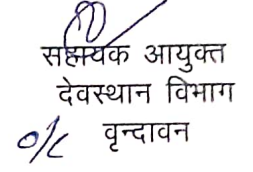 सहायक आयुक्त
देवस्थान विभाग
o/c वृन्दावन